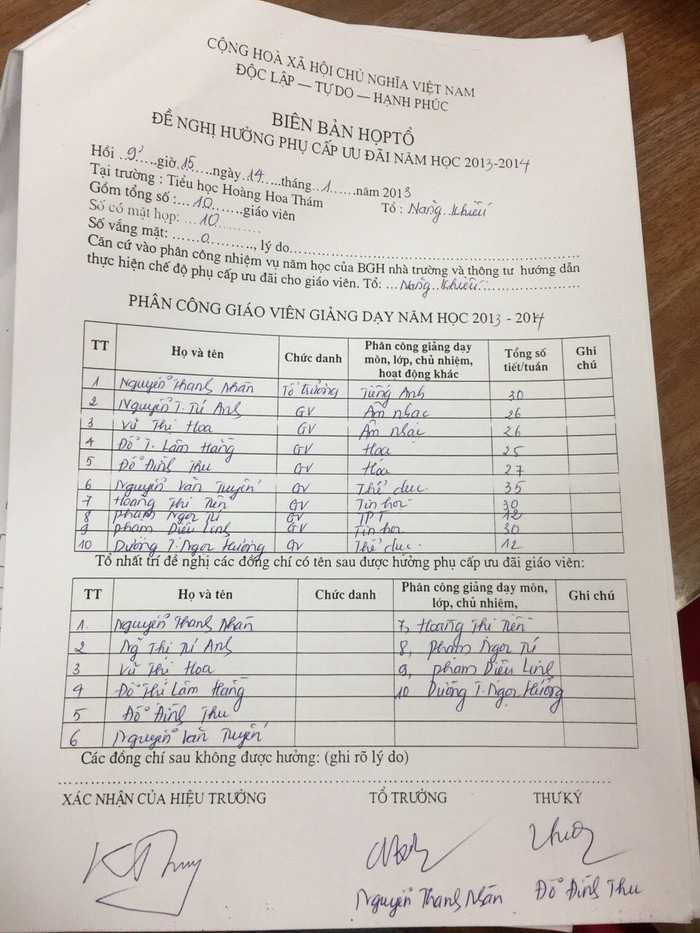 CỘNG HOÀ XÃ HỘI CHỦ NGHĨA VIỆT NAM
ĐỘC LẬP — TỰ DO — HẠNH PHÚC
BIÊN BẢN HỌP TỔ
ĐỀ NGHỊ HƯỞNG PHỤ CẤP ƯU ĐÃI NĂM HỌC 2013-2014
Hồi ..9....giờ.15....ngày.14....tháng..1.....năm 2013
Tại trường : Tiểu học Hoàng Hoa Thám Tổ : Năng khiếu
Gồm tổng số :...10.......giáo viên
Số có mặt họp: ...10..........
Số vắng mặt: ......0........., lý do..........................
Căn cứ vào phân công nhiệm vụ năm học của BGH nhà trường và thông tư hướng dẫn
thực hiện chế độ phụ cấp ưu đãi cho giáo viên. Tổ: ...Năng khiếu..........
PHÂN CÔNG GIÁO VIÊN GIẢNG DẠY NĂM HỌC 2013 - 2014
TT Họ và tên Chức danh Phân công giảng dạy môn, lớp, chủ nhiệm, hoạt động khác Tổng số tiết/tuần Ghi chú
1 Nguyễn Thanh Nhàn Tổ trưởng Tiếng Anh 30
2 Nguyễn T. Tú Anh GV Âm nhạc 26
3 Vũ Thị Hoa GV Âm nhạc 26
4 Đỗ T. Lâm Hằng GV Họa 25
5 Đỗ Đình Thu GV Họa 27
6 Nguyễn Văn Tuyến GV Thể dục 35
7 Hoàng Thị Tiến GV Tin học 30
8 Phạm Ngọc Tú GV TPT 12
9 Phạm Diệu Linh GV Tin học 30
10 Dương T. Ngọc Hường GV Thể dục 12
Tổ nhất trí đề nghị các đồng chí có tên sau được hưởng phụ cấp ưu đãi giáo viên:
TT Họ và tên Chức danh Phân công giảng dạy môn, lớp, chủ nhiệm, Ghi chú
1. Nguyễn Thanh Nhàn 7, Hoàng Thị Tiến
2 Ng Thị Tú Anh 8, Phạm Ngọc Tú
3 Vũ Thị Hoa 9, Phạm Diệu Linh
4 Đỗ Thị Lâm Hằng 10 Dương T. Ngọc Hường
5 Đỗ Đình Thu
6 Nguyễn Văn Tuyến
Các đồng chí sau không được hưởng: (ghi rõ lý do)
XÁC NHẬN CỦA HIỆU TRƯỞNG TỔ TRƯỞNG THƯ KÝ
Nguyễn Thanh Nhàn Đỗ Đình Thu